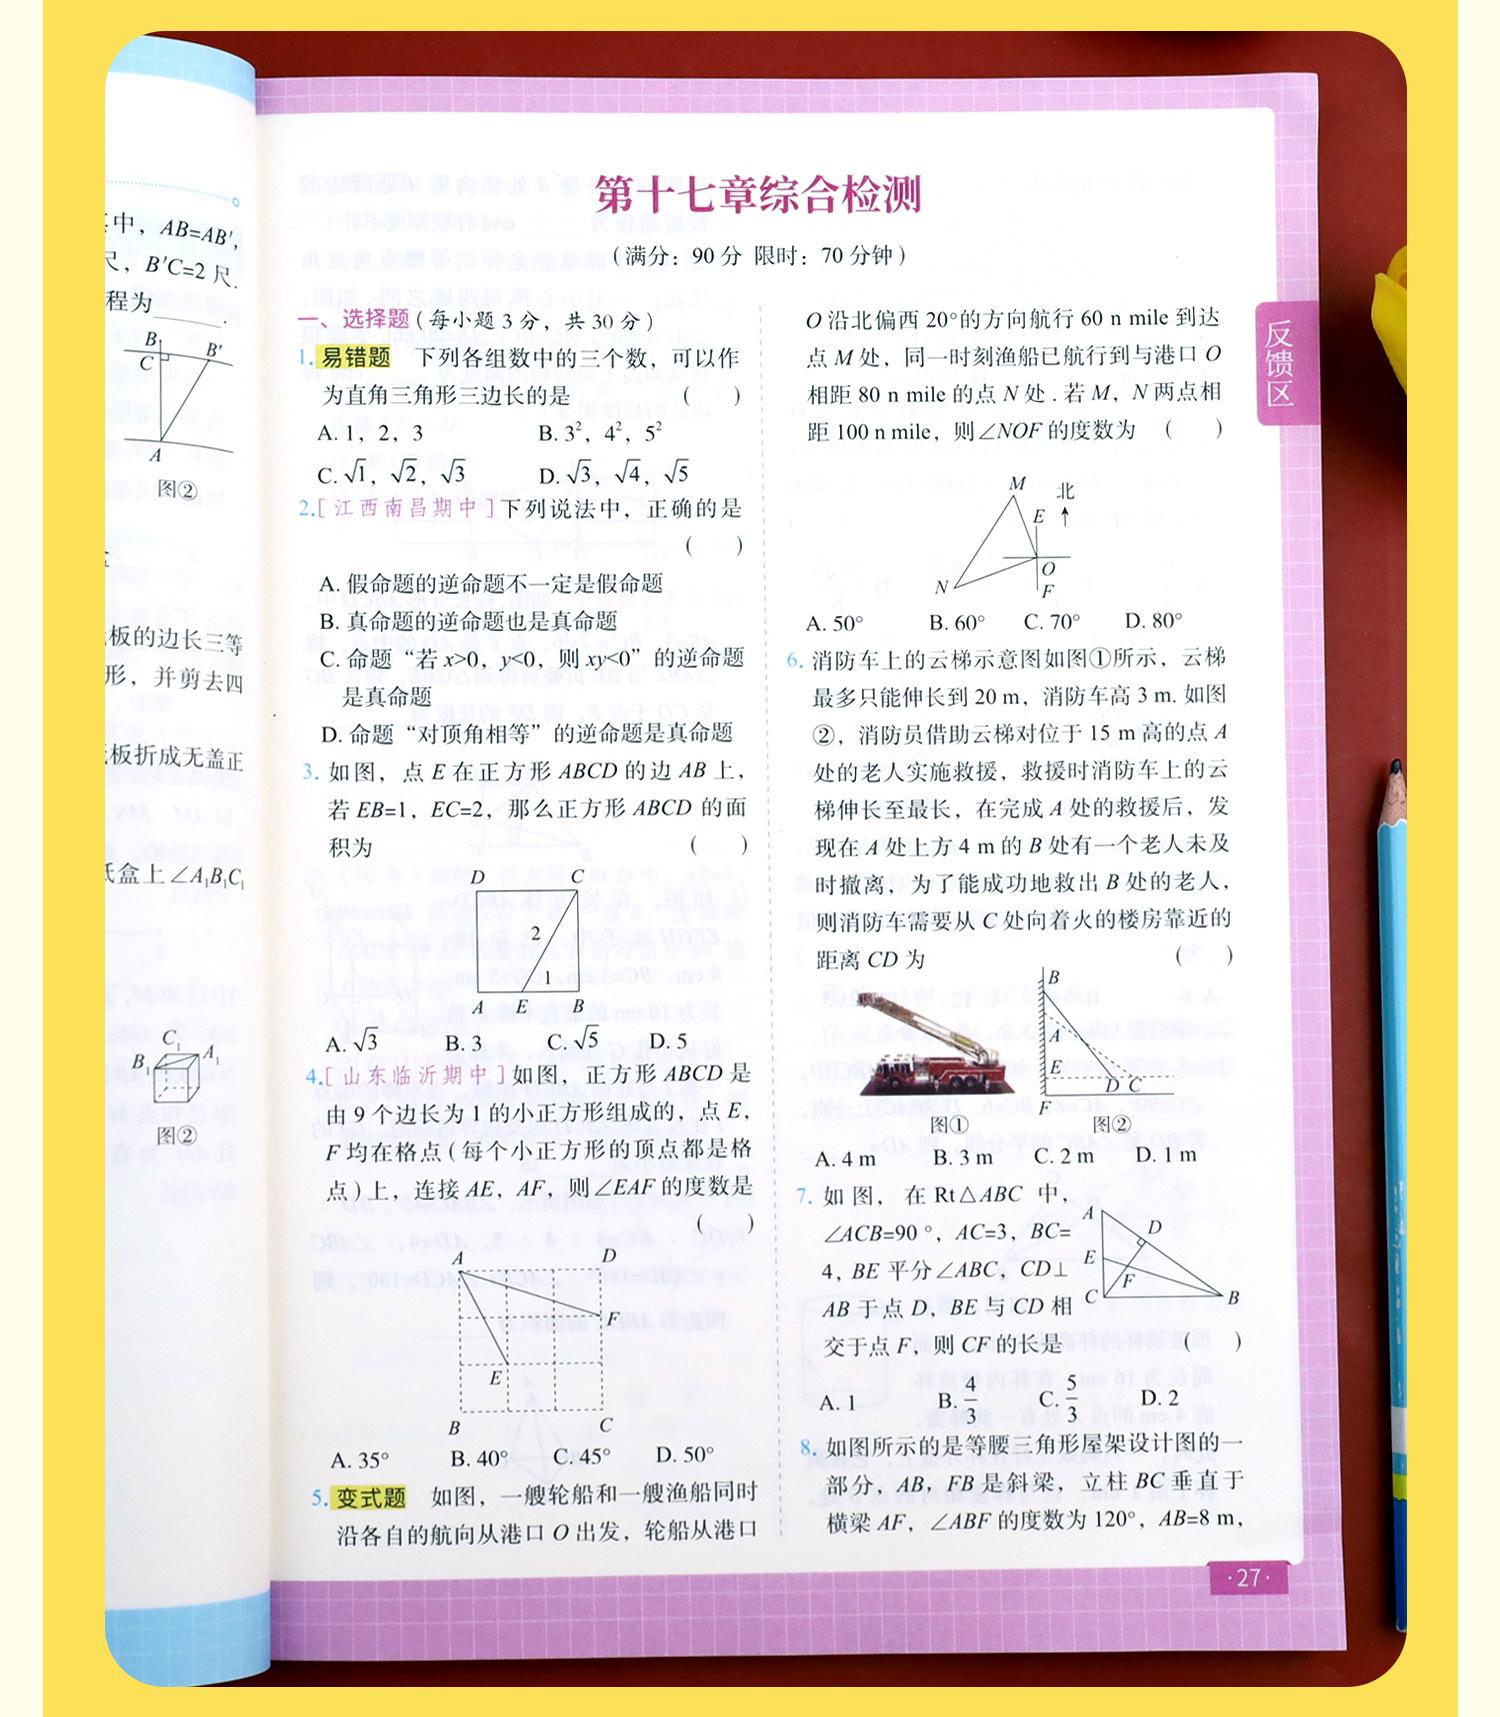 中，AB=AB′，
尺，B′C=2 尺.
程为______.
B
C
B′
A
图②
板的边长三等
形，并剪去四
板折成无盖正
纸盒上∠A₁B₁C₁
C₁
B₁
A₁
图②
第十七章综合检测
（满分：90 分 限时：70 分钟）
反馈区
一、选择题（每小题 3 分，共 30 分）
1. 易错题 下列各组数中的三个数，可以作
为直角三角形三边长的是 （ ）
A. 1，2，3 B. 3²，4²，5²
C. √1，√2，√3 D. √3，√4，√5
2.[江西南昌期中]下列说法中，正确的是
（ ）
A. 假命题的逆命题不一定是假命题
B. 真命题的逆命题也是真命题
C. 命题“若 x>0，y<0，则 xy<0”的逆命题
是真命题
D. 命题“对顶角相等”的逆命题是真命题
3. 如图，点 E 在正方形 ABCD 的边 AB 上，
若 EB=1，EC=2，那么正方形 ABCD 的面
积为 （ ）
D C
2
1
A E B
A. √3 B. 3 C. √5 D. 5
4.[山东临沂期中]如图，正方形 ABCD 是
由 9 个边长为 1 的小正方形组成的，点 E，
F 均在格点（每个小正方形的顶点都是格
点）上，连接 AE，AF，则∠EAF 的度数是
（ ）
A D
F
E
B C
A. 35° B. 40° C. 45° D. 50°
5. 变式题 如图，一艘轮船和一艘渔船同时
沿各自的航向从港口 O 出发，轮船从港口
O 沿北偏西 20°的方向航行 60 n mile 到达
点 M 处，同一时刻渔船已航行到与港口 O
相距 80 n mile 的点 N 处 . 若 M，N 两点相
距 100 n mile，则∠NOF 的度数为 （ ）
M 北
E
O
N F
A. 50° B. 60° C. 70° D. 80°
6. 消防车上的云梯示意图如图①所示，云梯
最多只能伸长到 20 m，消防车高 3 m. 如图
②，消防员借助云梯对位于 15 m 高的点 A
处的老人实施救援，救援时消防车上的云
梯伸长至最长，在完成 A 处的救援后，发
现在 A 处上方 4 m 的 B 处有一个老人未及
时撤离，为了能成功地救出 B 处的老人，
则消防车需要从 C 处向着火的楼房靠近的
距离 CD 为 （ ）
B
A
E
D C
F
图① 图②
A. 4 m B. 3 m C. 2 m D. 1 m
7. 如图，在 Rt△ABC 中，
∠ACB=90°，AC=3，BC=
4，BE 平分∠ABC，CD⊥
AB 于点 D，BE 与 CD 相
交于点 F，则 CF 的长是 （ ）
A
D
E
F
C B
A. 1 B. 4/3 C. 5/3 D. 2
8. 如图所示的是等腰三角形屋架设计图的一
部分，AB，FB 是斜梁，立柱 BC 垂直于
横梁 AF，∠ABF 的度数为 120°，AB=8 m，
·27·